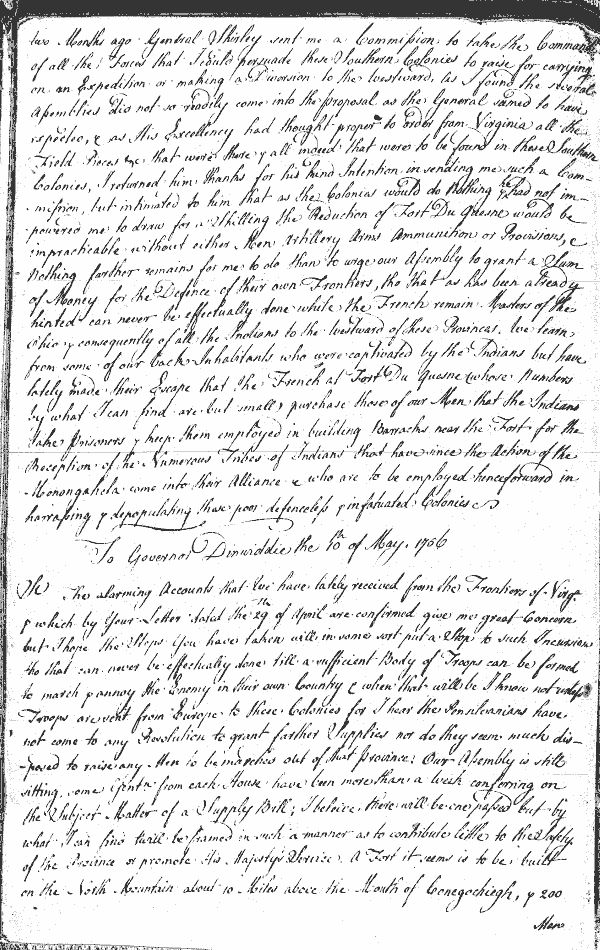 two Months ago General Shirley sent me a Commission to take the Command
of all the Forces that I could persuade these Southern Colonies to raise for carrying
on an Expedition or making a Diversion to the Westward, as I found the several
Assemblies did not so readily come into the proposal as the General seemed to have
expected, & as His Excellency had thought proper to order from Virginia all the
Field Pieces &c that were there & all indeed that were to be found in these Southern
Colonies, I returned him thanks for his kind Intention in sending me such a Com-
mission, but intimated to him that as the Colonies would do Nothing & he had not im-
powered me to draw for a Shilling the Reduction of Fort Du Quesne would be
impracticable without either Men Artillery Arms Ammunition or Provisions, &
Nothing farther remains for me to do than to urge our Assembly to grant a Sum
of Money for the Defence of their own Frontiers, tho that as has been already
hinted can never be effectually done while the French remain Masters of the
Ohio & consequently of all the Indians to the Westward of these Provinces. We learn
from some of our back Inhabitants who were captivated by the Indians but have
lately made their Escape that the French at Fort Du Quesne (whose Numbers
by what I can find are but small) purchase those of our Men that the Indians
take Prisoners & keep them employed in building Barracks near the Fort for the
Reception of the Numerous Tribes of Indians that have since the Action of the
Monongahela come into their Alliance & who are to be employed henceforward in
harrassing & depopulating these poor defenceless & infatuated Colonies
To Governor Dinwiddie the 10th of May. 1756
The alarming Accounts that We have lately received from the Frontiers of Virga
& which by Your Letter dated the 29th of April are confirmed give me great Concern
but I hope the Steps You have taken will in some sort put a Stop to such Incursions
tho that can never be effectually done till a sufficient Body of Troops can be formed
to march & annoy the Enemy in their own Country & when that will be I know not unless
Troops are sent from Europe to these Colonies for I hear the Pensilvanians have
not come to any Resolution to grant farther Supplies nor do they seem much dis-
-posed to raise any Men to be marched out of that Province: Our Assembly is still
sitting, some Gentn from each House have been more than a Week conferring on
the Subject Matter of a Supply Bill; I beleive there will be one passed but by
what I can find twill be framed in such a manner as to contribute little to the Safety
of the Province or promote His Majestys Service. A Fort it seems is to be built
on the North Mountain about 10 Miles above the Mouth of Conegochiegh, & 200
Men